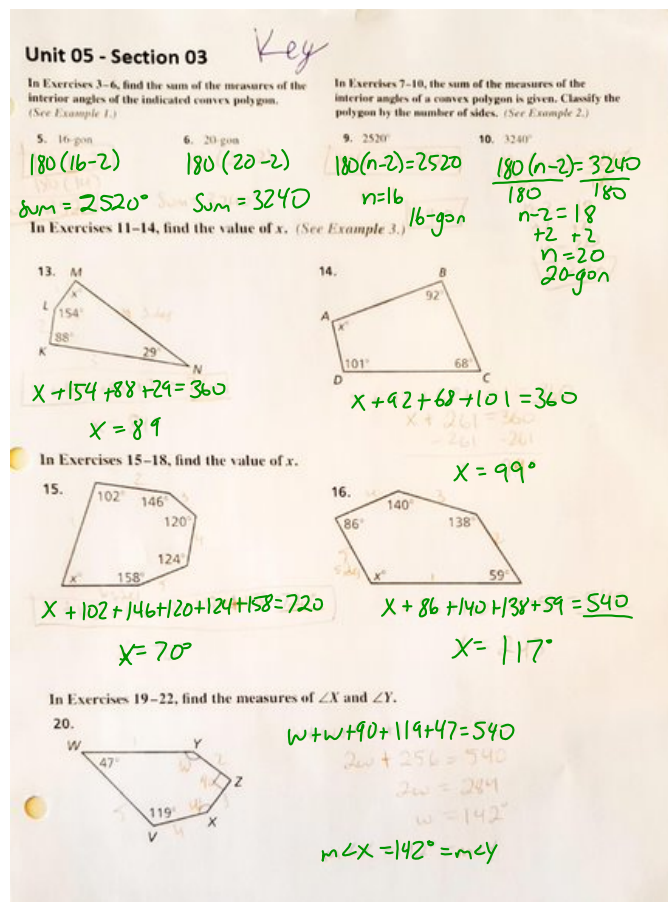 Key
Unit 05 - Section 03
In Exercises 3–6, find the sum of the measures of the
interior angles of the indicated convex polygon.
(See Example 1.)
5. 16-gon
6. 20-gon
180(16-2)
180(20-2)
Sum = 2520°
Sum = 3240
In Exercises 7–10, the sum of the measures of the
interior angles of a convex polygon is given. Classify the
polygon by the number of sides. (See Example 2.)
9. 2520°
10. 3240°
180(n-2)=2520
n=16
16-gon
180(n-2)= 3240
180 180
n-2 = 18
+2 +2
n=20
20-gon
In Exercises 11–14, find the value of x. (See Example 3.)
13.
M
x°
L
154°
88°
K
29°
N
x+154+88+29=360
x = 89
14.
B
92°
A
x°
101°
68°
D
C
x+92+68+101=360
x + 261 = 360
- 261 -261
x = 99°
In Exercises 15–18, find the value of x.
15.
102°
146°
120°
124°
x°
158°
x+102+146+120+124+158=720
x=70°
16.
140°
86°
138°
x°
59°
x+86+140+138+59=540
x= 117°
In Exercises 19–22, find the measures of ∠X and ∠Y.
20.
W
Y
47°
w
Z
119°
X
V
w+w+90+119+47=540
2w + 256 = 540
2w = 284
w = 142°
m<X =142° =m<Y